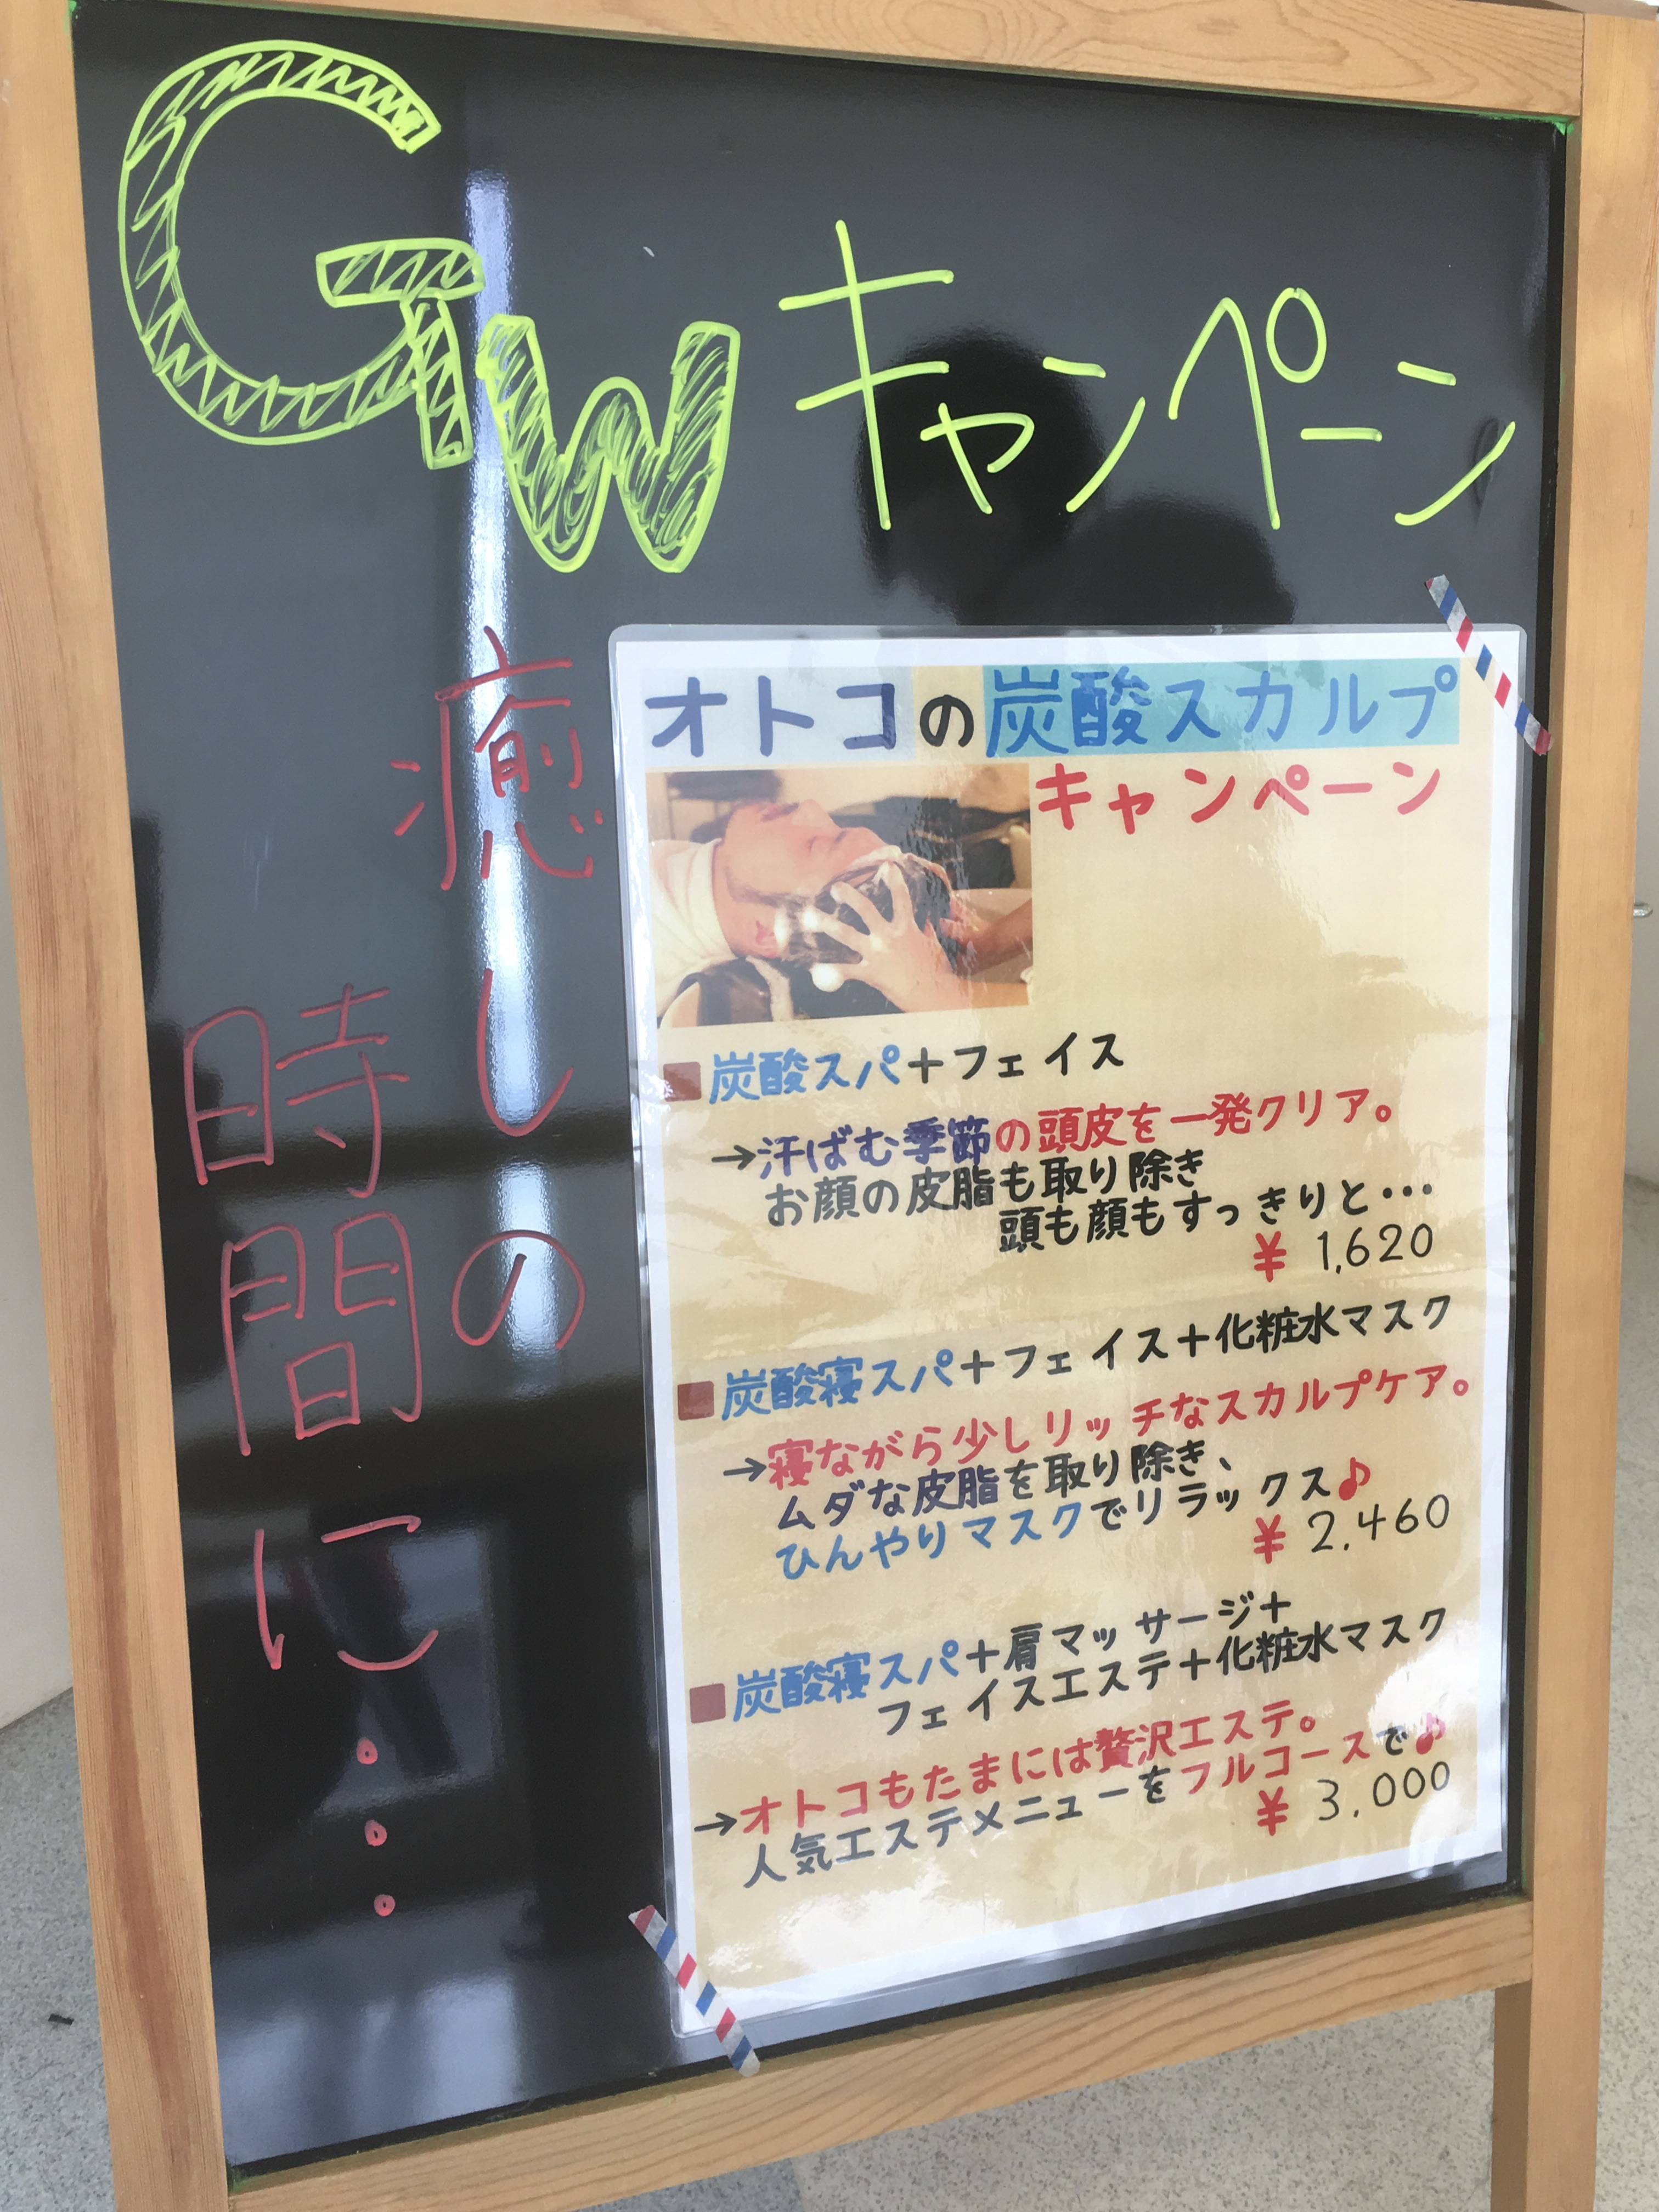 GWキャンペーン
癒しの
時間に・・・
オトコの炭酸スカルプ
キャンペーン
■炭酸スパ+フェイス
→汗ばむ季節の頭皮を一発クリア。
お顔の皮脂も取り除き
頭も顔もすっきりと・・・
¥ 1,620
■炭酸寝スパ+フェイス+化粧水マスク
→寝ながら少しリッチなスカルプケア。
ムダな皮脂を取り除き、
ひんやりマスクでリラックス♪
¥ 2,460
■炭酸寝スパ+肩マッサージ+
フェイスエステ+化粧水マスク
→オトコもたまには贅沢エステ。
人気エステメニューをフルコースで♪
¥ 3,000